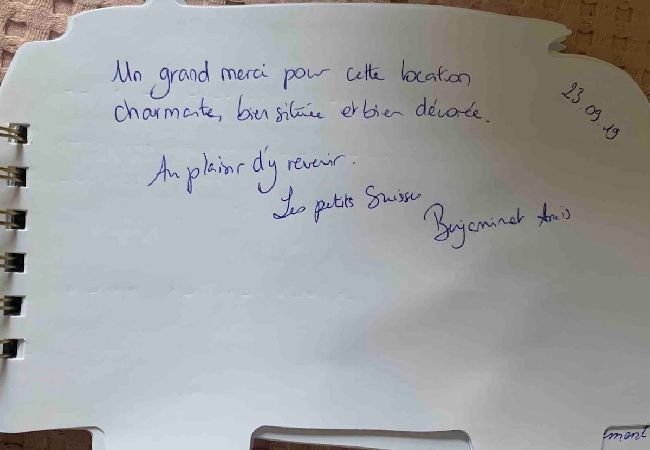 Un grand merci pour cette location
charmante, bien située et bien décorée.
23.09.19
Au plaisir d'y revenir.
Les petits Suisses
Benjamin et Anaïs
ment